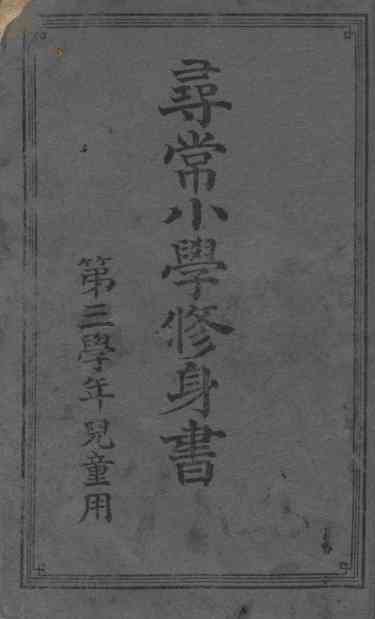 尋常小學修身書
第三學年兒童用